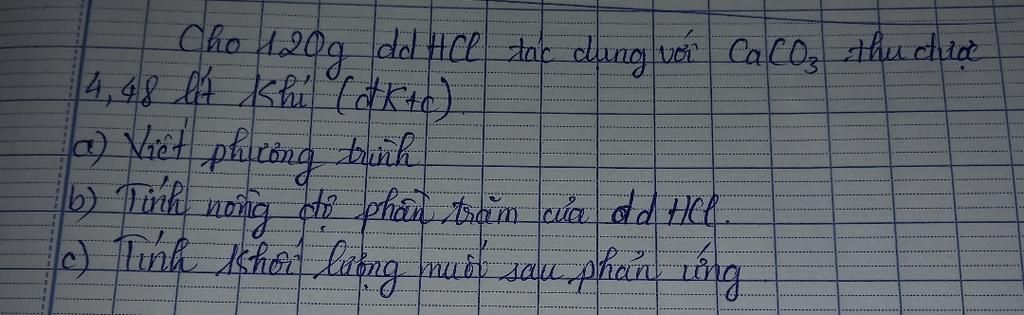 Cho 120g dd HCl tác dụng với CaCO3 thu được
4,48 lít khí (đktc)
a) Viết phương trình
b) Tính nồng độ phần trăm của dd HCl.
c) Tính khối lượng muối sau phản ứng